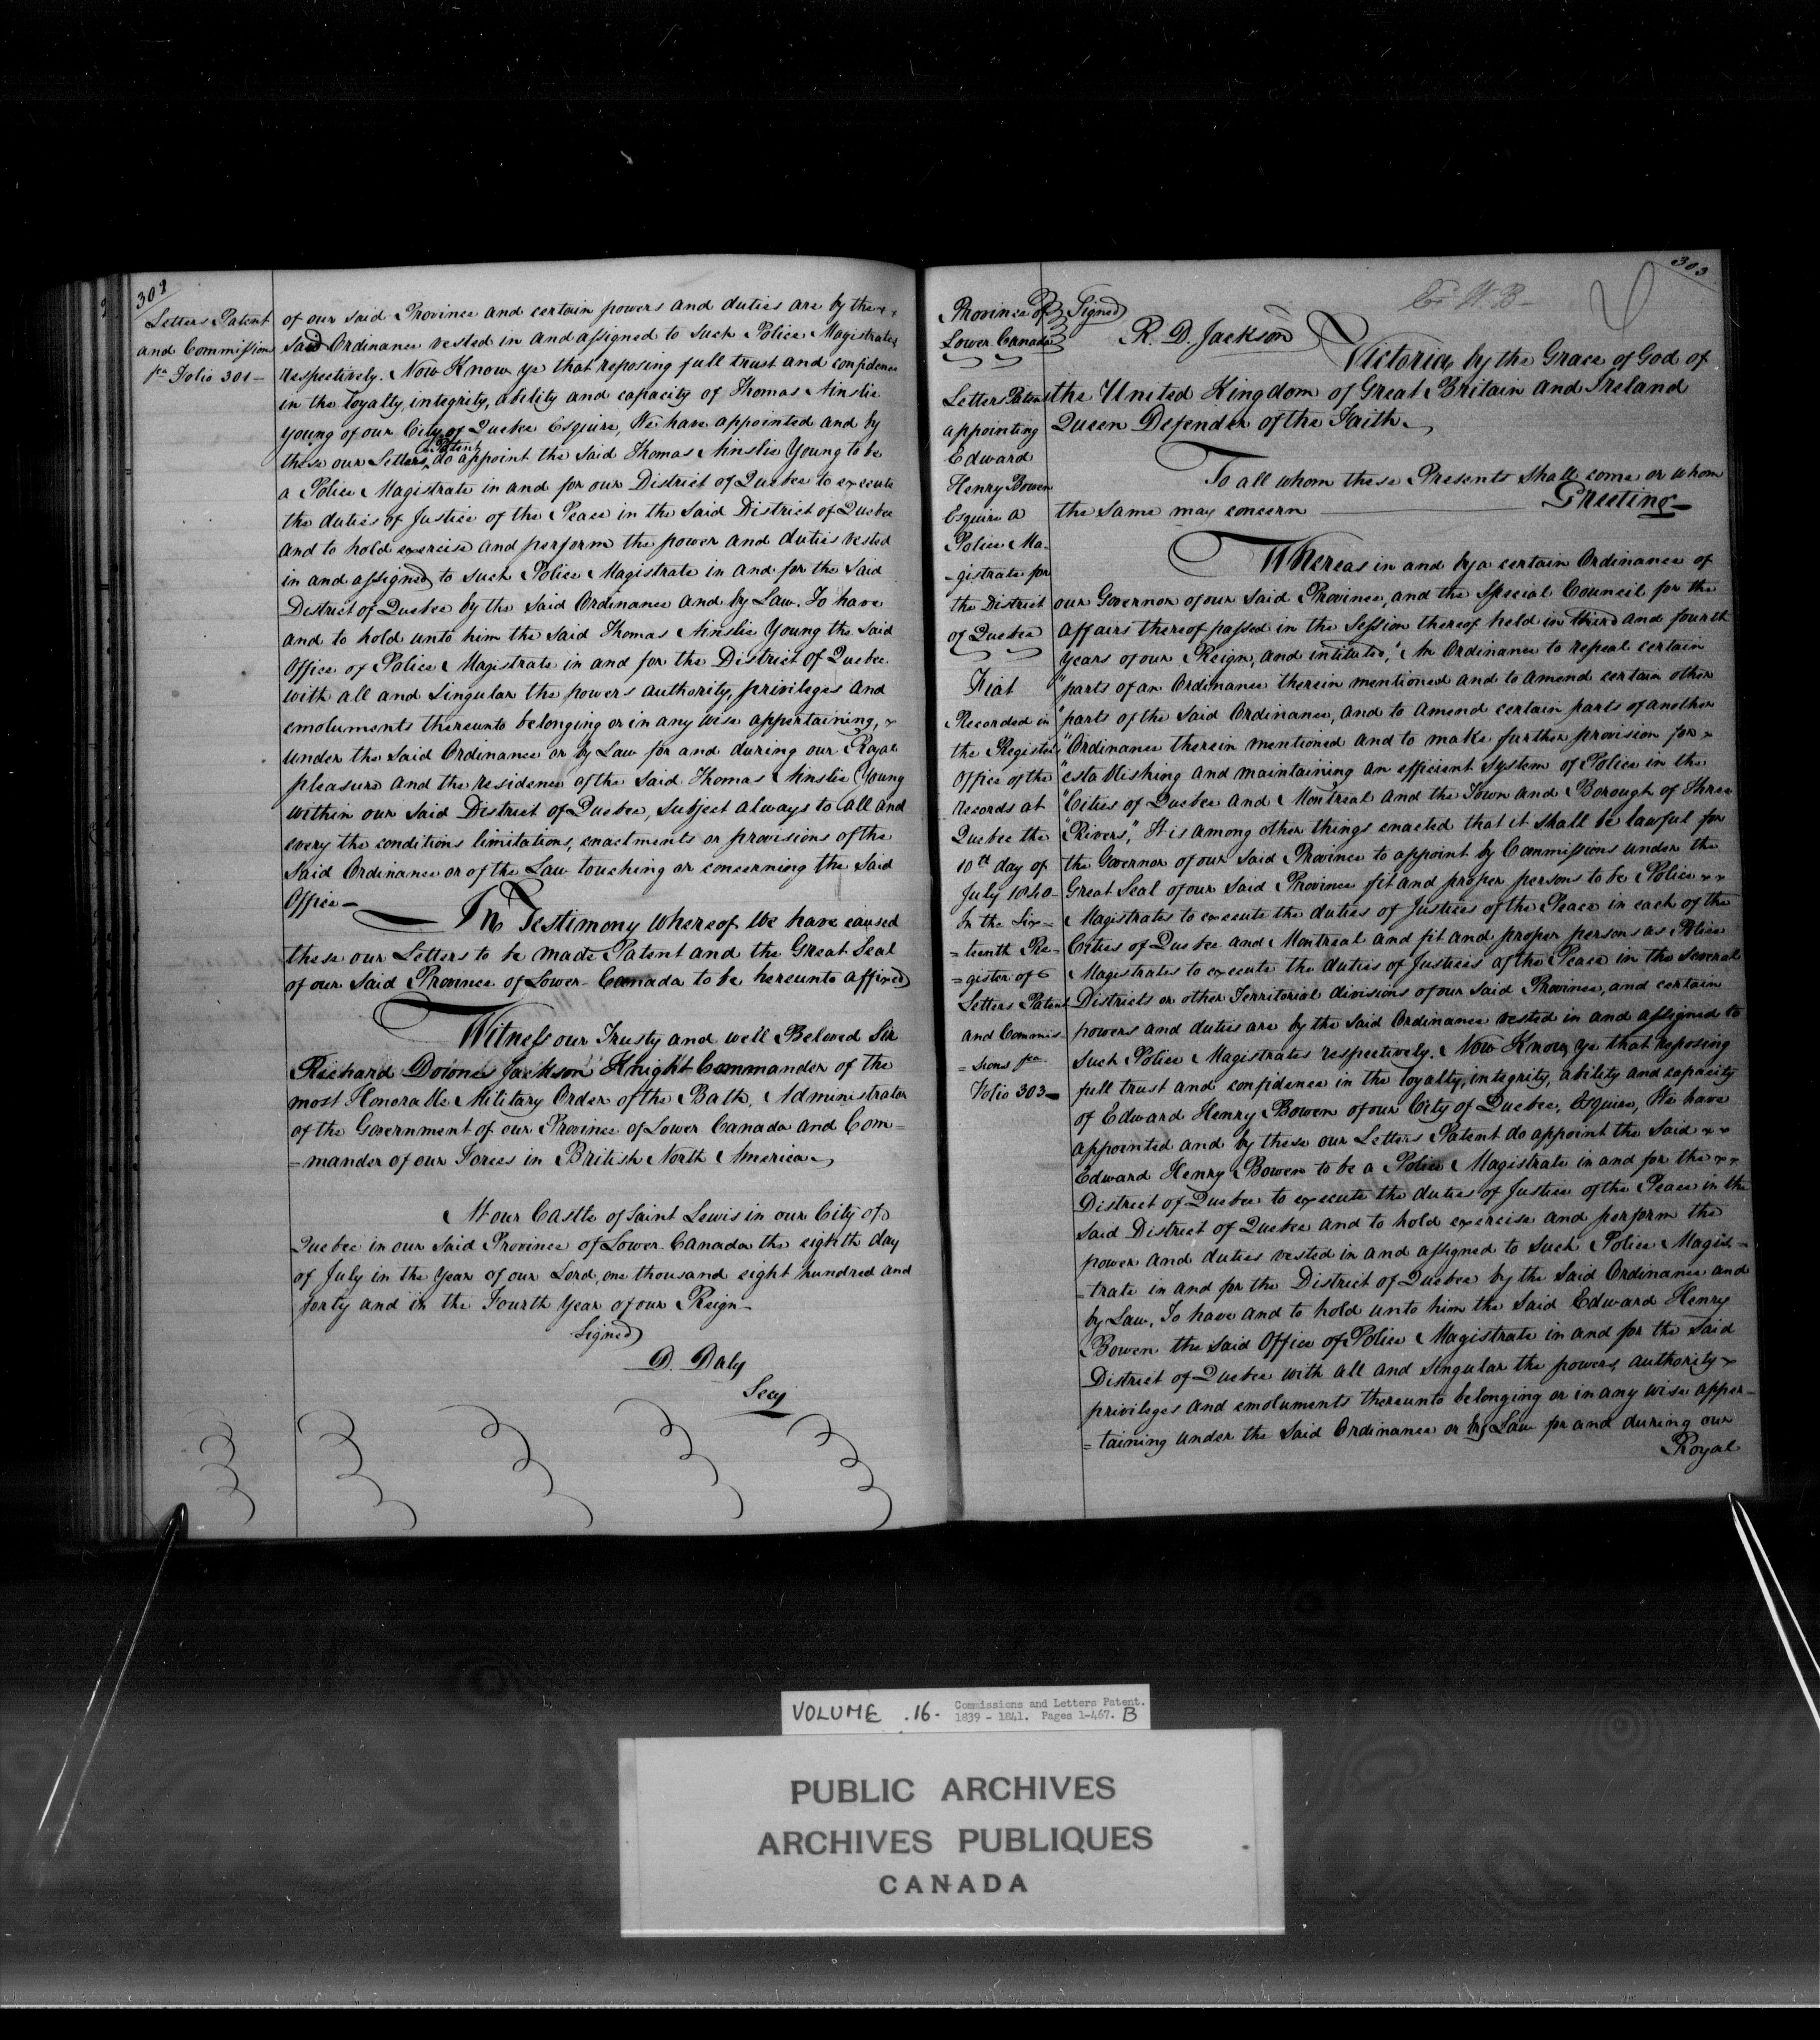 302
Letters Patent
and Commission
fia Folio 301 –
of our said Province and certain powers and duties are by the x x
said Ordinance vested in and assigned to such Police Magistrates
respectively. Now Know ye that reposing full trust and confidence
in the loyalty, integrity, ability and capacity of Thomas Ainslie
Young of our City of Quebec Esquire, We have appointed and by
these our Letters Patent do appoint the said Thomas Ainslie Young to be
a Police Magistrate in and for our District of Quebec to execute
the duties of Justice of the Peace in the said District of Quebec
and to hold exercise and perform the power and duties vested
in and assigned to such Police Magistrate in and for the said
District of Quebec by the said Ordinance and by Law. To have
and to hold unto him the said Thomas Ainslie Young the said
Office of Police Magistrate in and for the District of Quebec
with all and singular the powers authority, privileges and
emoluments thereunto belonging or in any wise appertaining, x
under the said Ordinance or by Law for and during our Royal
pleasure and the residence of the said Thomas Ainslie Young
within our said District of Quebec, subject always to all and
every the conditions limitations, enactments or provisions of the
said Ordinance or of the Law touching or concerning the said
Office –
In Testimony Whereof We have caused
these our Letters to be made Patent and the Great Seal
of our said Province of Lower-Canada to be hereunto affixed
Witness our Trusty and well Beloved Sir
Richard Downes Jackson Knight Commander of the
most Honorable Military Order of the Bath, Administrator
of the Government of our Province of Lower Canada and Com=
=mander of our Forces in British North America
At our Castle of Saint Lewis in our City of
Quebec in our said Province of Lower-Canada the eighth day
of July in the Year of our Lord, one thousand eight hundred and
forty and in the Fourth Year of our Reign –
Signed)
D. Daly
Secy
303
E. H. B –
Province of
Lower Canada
Signed)
R. D. Jackson
Letters Patent
appointing
Edward
Henry Bowen
Esquire a
Police Ma-
-gistrate for
the District
of Quebec
Fiat
Recorded in
the Register
Office of the
records at
Quebec the
10th day of
July 1840 –
In the Six-
=teenth Re-
=gister of
Letters Patent
and Commis
=sions
Folio 303 –
Victoria by the Grace of God of
the United Kingdom of Great Britain and Ireland
Queen Defender of the Faith.
To all whom these Presents shall come or whom
the same may concern Greeting –
Whereas in and by a certain Ordinance of
our Governor of our said Province, and the Special Council for the
affairs thereof passed in the Session thereof held in third and fourth
years of our Reign, and intituted, "An Ordinance to repeal certain
"parts of an Ordinance therein mentioned and to amend certain other
"parts of the said Ordinance, and to amend certain parts of another
"Ordinance therein mentioned and to make further provision for x
"establishing and maintaining an efficient System of Police in the
"Cities of Quebec and Montreal and the Town and Borough of Three
"Rivers," It is among other things enacted that it shall be lawful for
the Governor of our said Province to appoint by Commissions under the
Great Seal of our said Province fit and proper persons to be Police x x
Magistrates to execute the duties of Justices of the Peace in each of the
Cities of Quebec and Montreal and fit and proper persons as Police
Magistrates to execute the duties of Justices of the Peace in the several
Districts or other Territorial divisions of our said Province, and certain
powers and duties are by the said Ordinance vested in and assigned to
such Police Magistrates respectively. Now Know Ye that reposing
full trust and confidence in the loyalty, integrity, ability and capacity
of Edward Henry Bowen of our City of Quebec, Esquire, We have
appointed and by these our Letters Patent do appoint the said x x
Edward Henry Bowen to be a Police Magistrate in and for the x x
District of Quebec to execute the duties of Justice of the Peace in the
said District of Quebec and to hold exercise and perform the
power and duties vested in and assigned to such Police Magis=
=trate in and for the District of Quebec by the said Ordinance and
by Law, To have and to hold unto him the said Edward Henry
Bowen the said Office of Police Magistrate in and for the said
District of Quebec with all and singular the powers authority x
privileges and emoluments thereunto belonging or in any wise apper=
=taining under the said Ordinance or by Law for and during our
Royal
VOLUME .16. Commissions and Letters Patent.
1839 - 1841. Pages 1-467. B
PUBLIC ARCHIVES
ARCHIVES PUBLIQUES
CANADA